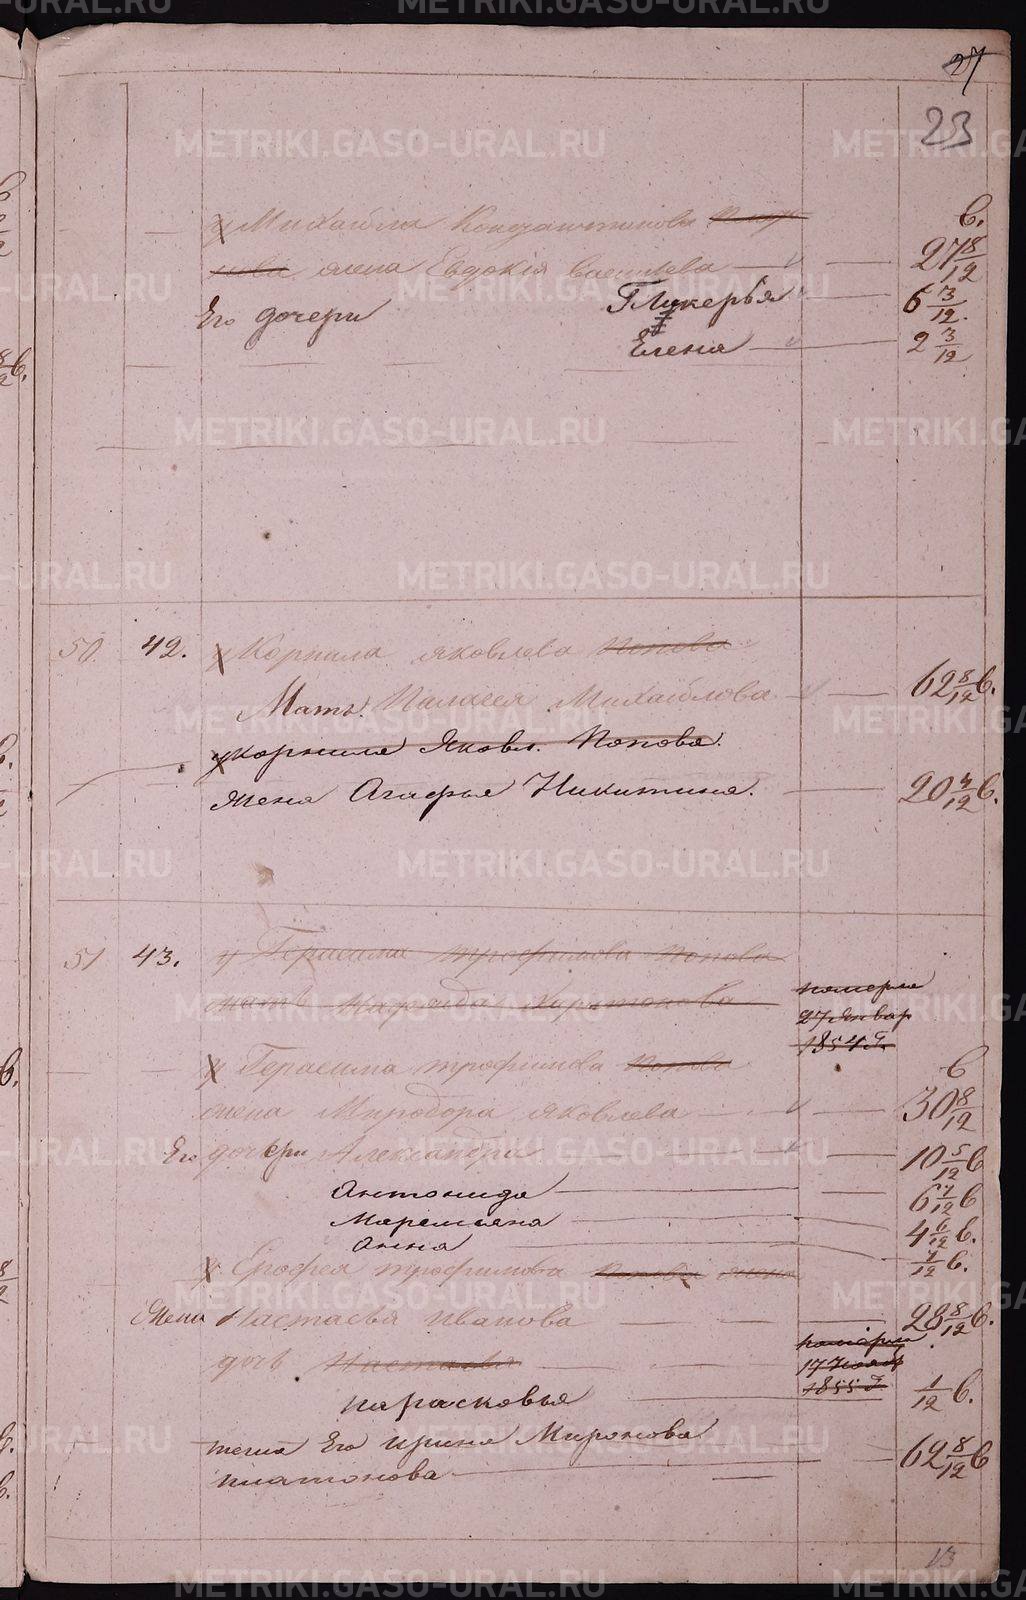 27
23
у Михайла Константинова
жена Евдокія Васильева в. 27 8/12
Его дочери Гликерья 6 3/12.
Елена 2 3/12
50. 42. у Корнила Яковлева Попова
Мать Палагея Михайлова 62 8/12 в.
у Корнила Яковл. Попова.
жена Агафья Никитина. 20 4/12 в.
51 43. у Герасима Трофимова Попова
мать Харитонова
померла
27 Январ
1854 г.
у Герасима Трофимова Попова в
жена Миродора Яковлева 30 8/12
Его дочери Александра 10 5/12 в
Антонида 6 7/12 в
Маремьяна 4 6/12 в.
Анна 7/12 в.
у Ерофея Трофимова Попова жена
Жена Настасья Иванова 28 8/12 в.
дочь Настасья
померла
17 Нояб
1855 г.
Парасковья 1/12 в.
теща Его Ирина Миронова
Платонова 62 8/12 в
13
METRIKI.GASO-URAL.RU